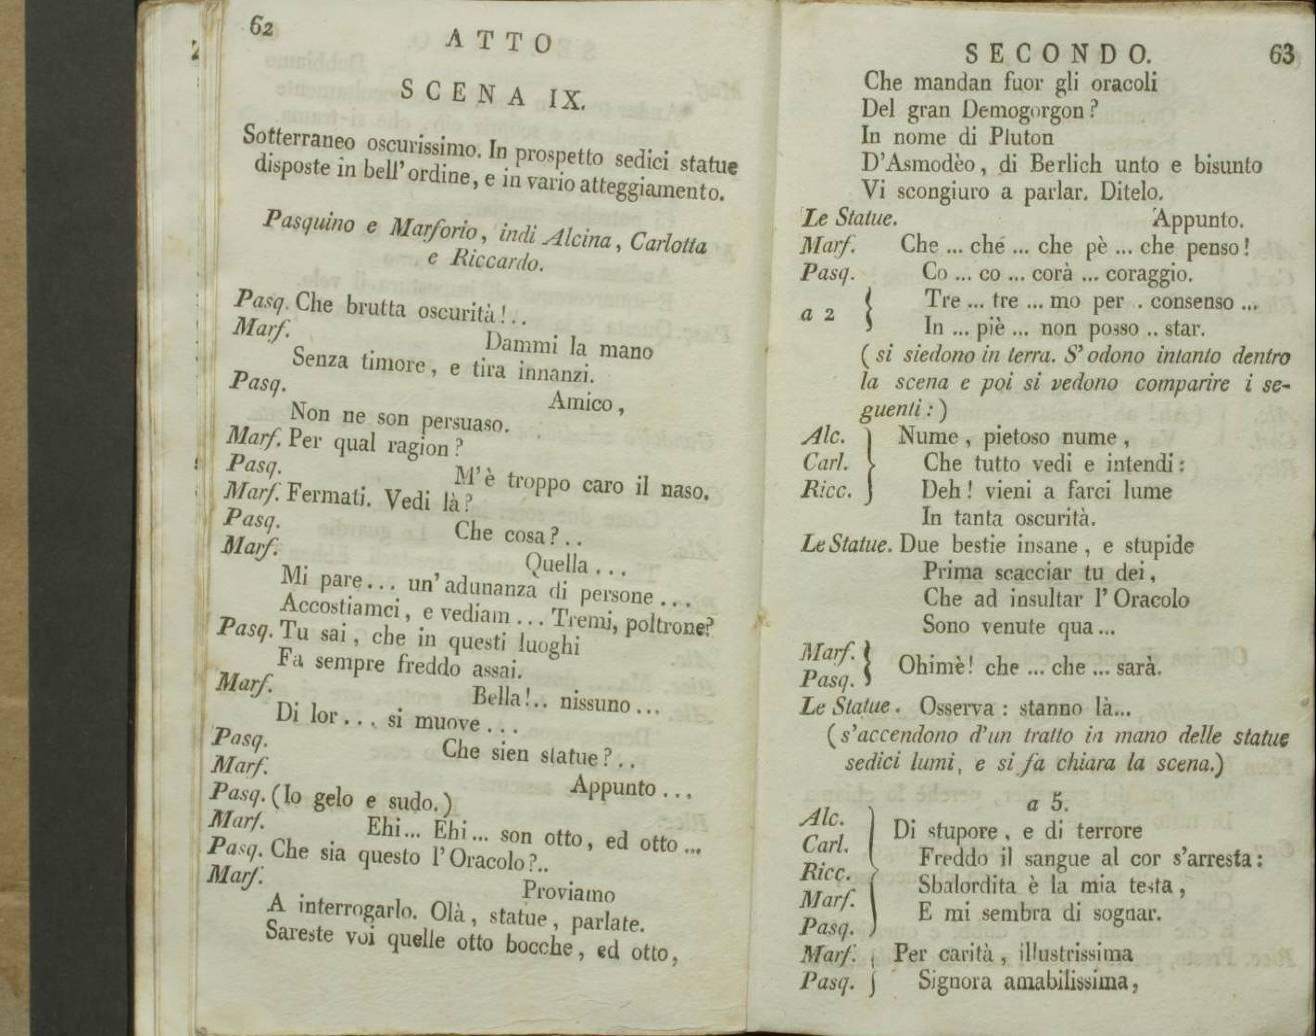 62
ATTO
SCENA IX.
Sotterraneo oscurissimo. In prospetto sedici statue
disposte in bell'ordine, e in vario atteggiamento.
Pasquino e Marforio, indi Alcina, Carlotta
e Riccardo.
Pasq. Che brutta oscurità!..
Marf. Dammi la mano
Senza timore, e tira innanzi.
Pasq. Amico,
Non ne son persuaso.
Marf. Per qual ragion?
Pasq. M'è troppo caro il naso.
Marf. Fermati. Vedi là?
Pasq. Che cosa?..
Marf. Quella...
Mi pare... un'adunanza di persone...
Accostiamci, e vediam... Tremi, poltrone?
Pasq. Tu sai, che in questi luoghi
Fa sempre freddo assai.
Marf. Bella!.. nissuno...
Di lor... si muove...
Pasq. Che sien statue?..
Marf. Appunto...
Pasq. (Io gelo e sudo.)
Marf. Ehi... Ehi... son otto, ed otto...
Pasq. Che sia questo l'Oracolo?..
Marf. Proviamo
A interrogarlo. Olà, statue, parlate.
Sareste voi quelle otto bocche, ed otto,
SECONDO. 63
Che mandan fuor gli oracoli
Del gran Demogorgon?
In nome di Pluton
D'Asmodèo, di Berlich unto e bisunto
Vi scongiuro a parlar. Ditelo.
Le Statue. Appunto.
Marf. Che... ché... che pè... che penso!
Pasq. Co... co... corà... coraggio.
a 2 { Tre... tre... mo per . consenso...
In... piè... non posso .. star.
(si siedono in terra. S'odono intanto dentro
la scena e poi si vedono comparire i se-
guenti:)
Alc. } Nume, pietoso nume,
Carl. } Che tutto vedi e intendi:
Ricc. } Deh! vieni a farci lume
In tanta oscurità.
Le Statue. Due bestie insane, e stupide
Prima scacciar tu dei,
Che ad insultar l'Oracolo
Sono venute qua...
Marf. }
Pasq. } Ohimè! che... che... sarà.
Le Statue. Osserva: stanno là...
(s'accendono d'un tratto in mano delle statue
sedici lumi, e si fa chiara la scena.)
a 5.
Alc. } Di stupore, e di terrore
Carl. } Freddo il sangue al cor s'arresta:
Ricc. } Sbalordita è la mia testa,
Marf. } E mi sembra di sognar.
Pasq. }
Marf. } Per carità, illustrissima
Pasq. } Signora amabilissima,